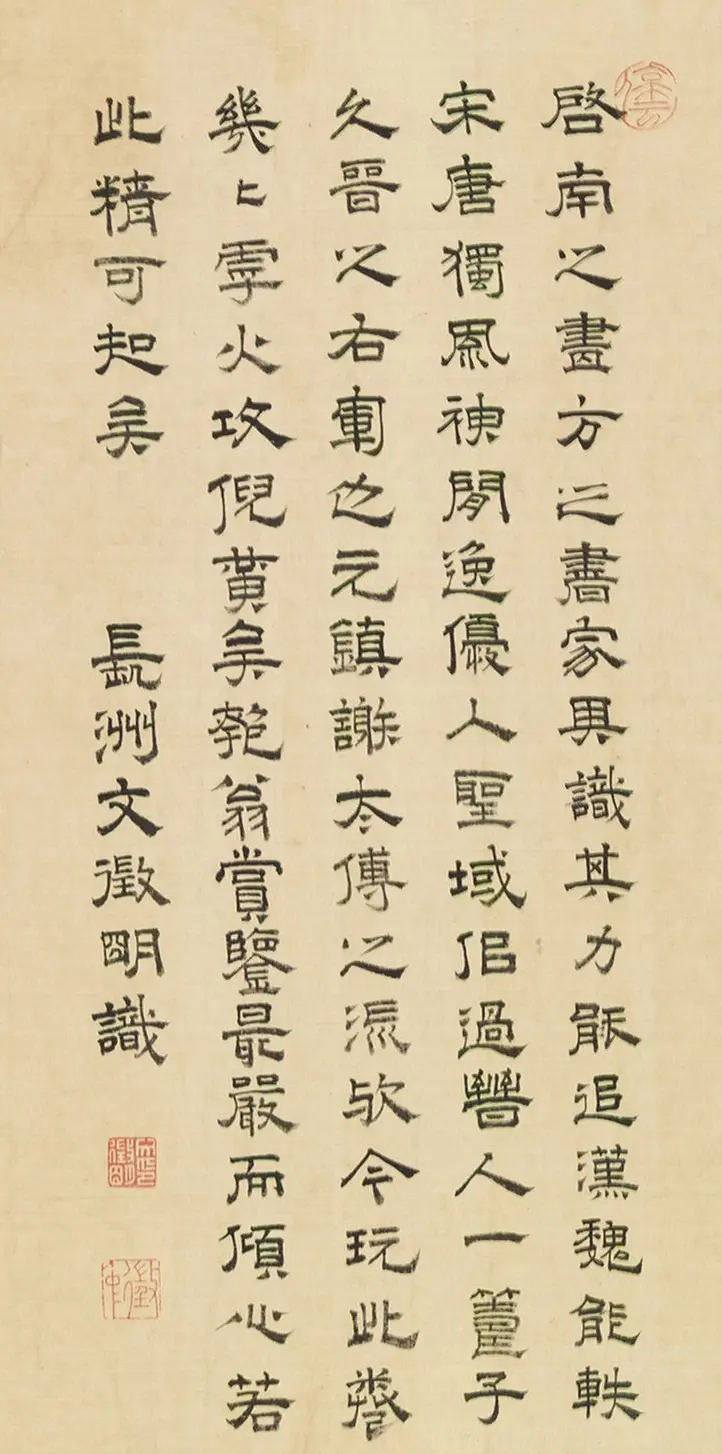 停雲
啓南之畫方之書家具識其力追漢魏能軼
宋唐獨風神閒逸優入聖域佀過人一籌子
久晉之右軍也元鎮謝太傅之流歟今玩此卷
幾〻虖火攻倪黃矣匏翁賞鑒最嚴而傾心若
此精可知矣 長洲文徵明識
文徵明印
徵仲